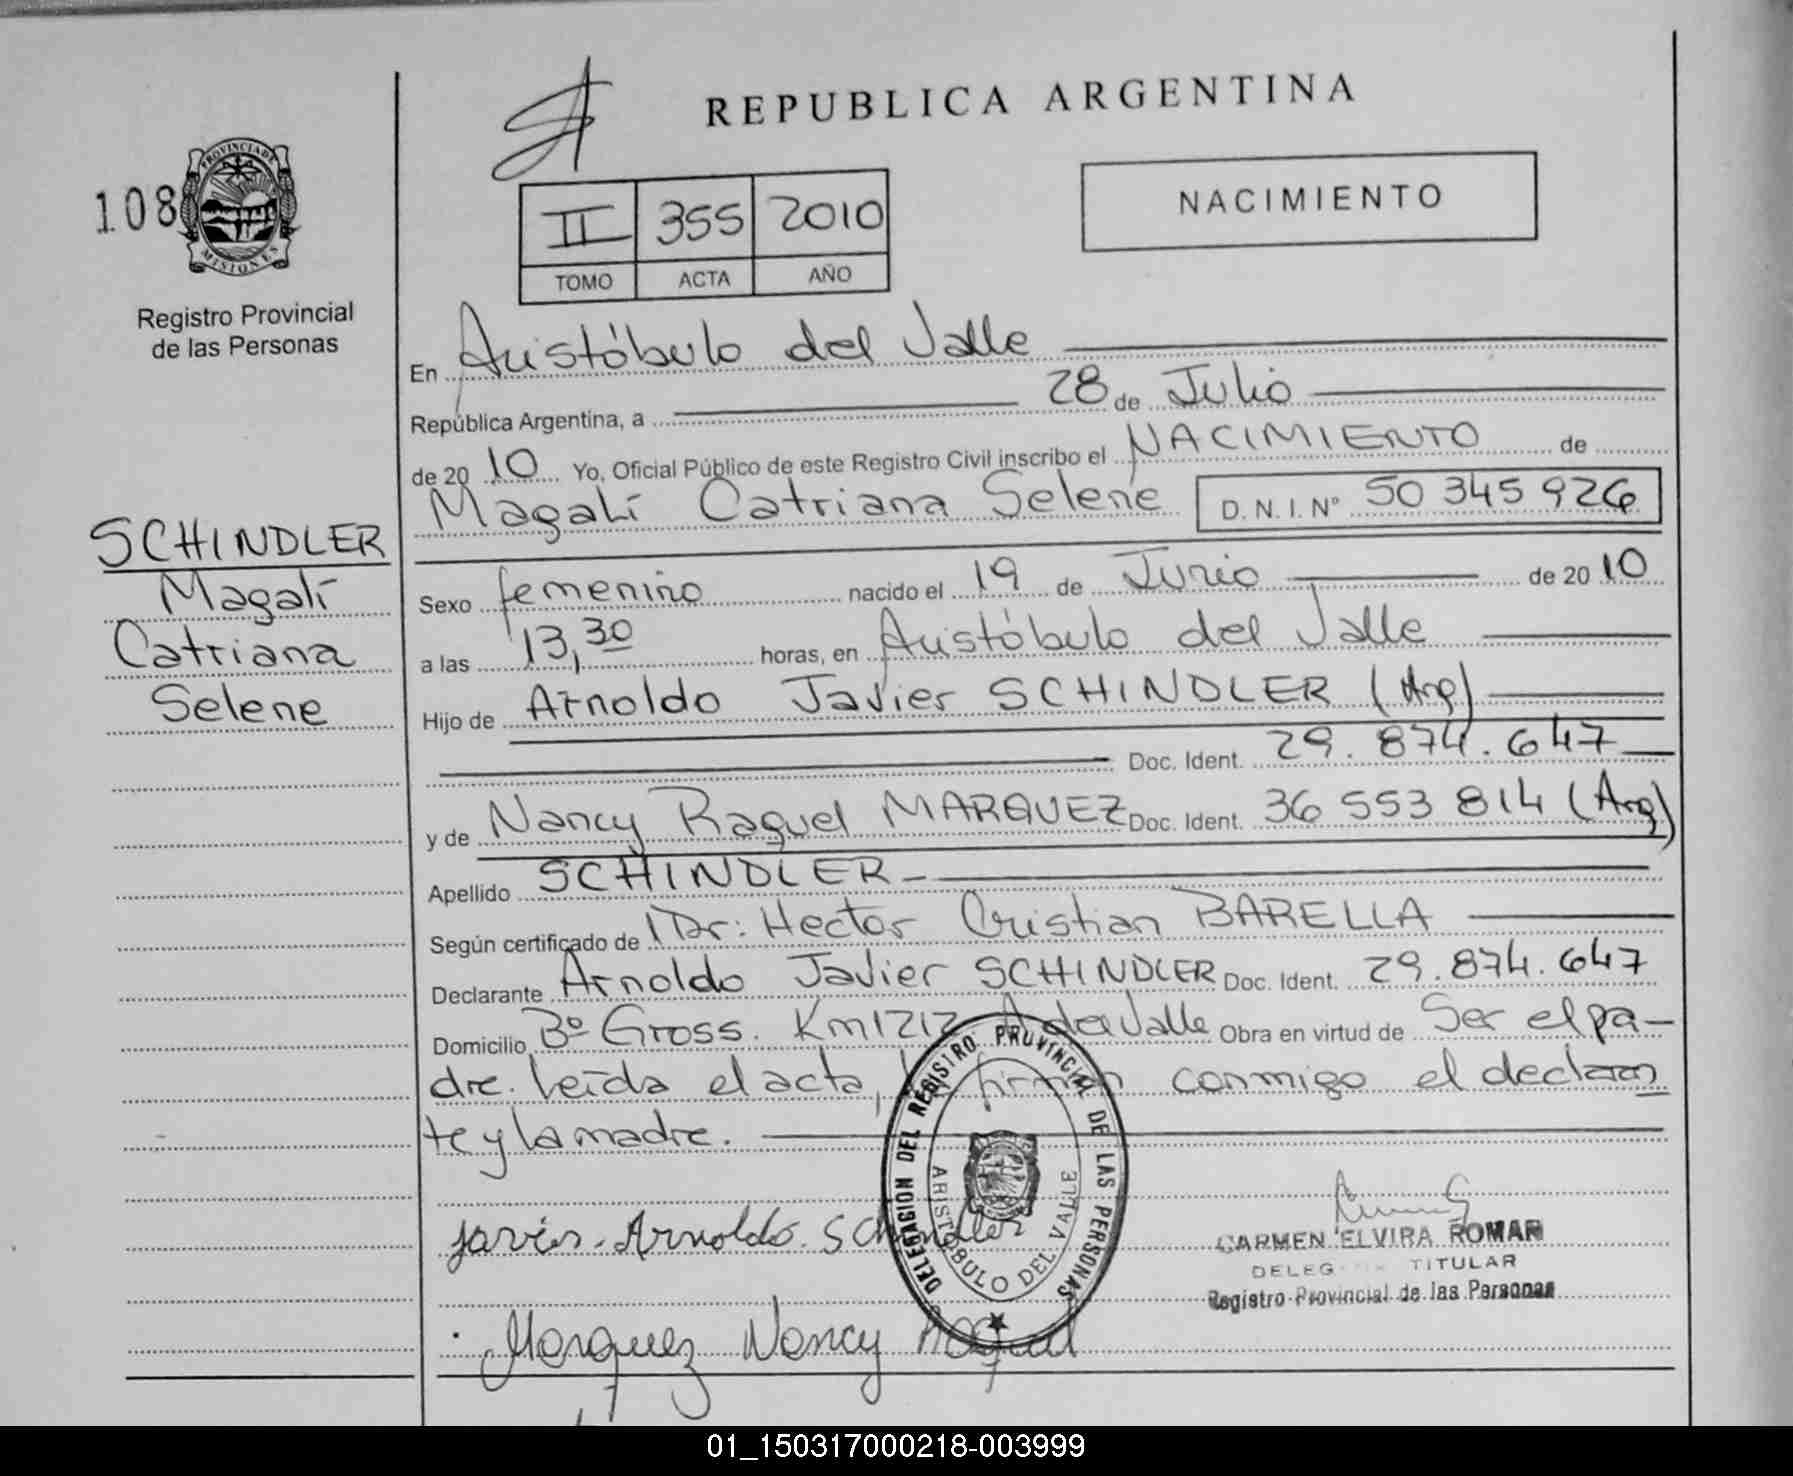 REPUBLICA ARGENTINA
108
PROVINCIA DE MISIONES
Registro Provincial
de las Personas
II 355 2010
TOMO ACTA AÑO
NACIMIENTO
SCHINDLER
Magalí
Catriana
Selene
En Aristóbulo del Valle
República Argentina, a 28 de Julio
de 2010 Yo, Oficial Público de este Registro Civil inscribo el NACIMIENTO de
Magalí Catriana Selene D.N.I. Nº 50 345 926
Sexo femenino nacido el 19 de Junio de 2010
a las 13,30 horas, en Aristóbulo del Valle
Hijo de Arnoldo Javier SCHINDLER (Arg)
Doc. Ident. 29.874.647
y de Nancy Raquel MARQUEZ Doc. Ident. 36 553 814 (Arg)
Apellido SCHINDLER
Según certificado de Dr: Hector Cristian BARELLA
Declarante Arnoldo Javier SCHINDLER Doc. Ident. 29.874.647
Domicilio Bº Gross. Km1212 A del Valle Obra en virtud de Ser el pa-
dre. Leída el acta, firman conmigo el declaran
te y la madre.
DELEGACION DEL REGISTRO PROVINCIAL DE LAS PERSONAS
ARISTOBULO DEL VALLE
Javier. Arnoldo. Schindler
CARMEN ELVIRA ROMAN
TITULAR
Registro Provincial de las Personas
Marquez Nancy Raquel
01_150317000218-003999